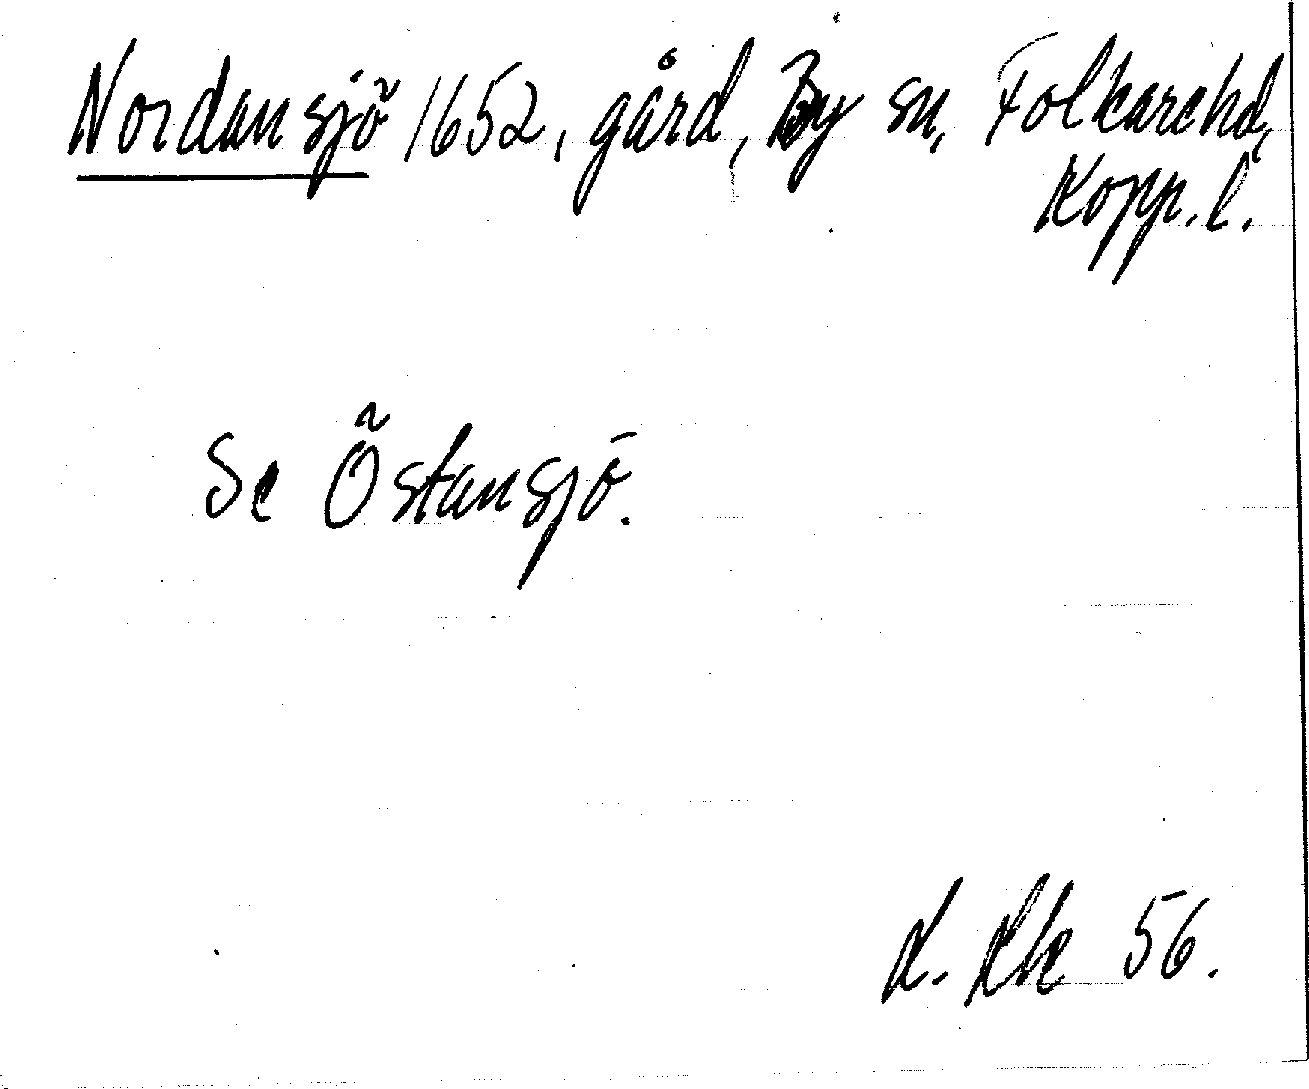 Nordansjö 1652, gård, By sn, Folkarehd,
Kopp. l.
Se Östansjö.
56.